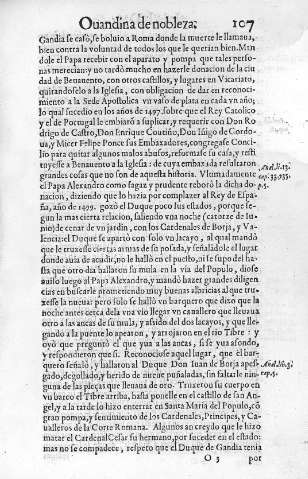 Quandina de nobleza. 107
Gandia se casò, se boluio a Roma donde la muerte le llamaua,
bien contra la voluntad de todos los que le querian bien. Man
dole el Papa recebir con el aparato y pompa que tales perso-
nas merecian: y no tardò mucho en hazerle donacion de la ciu
dad de Beneuento, con otros castillos, y lugares en Vicariato,
quitandoselo a la Iglesia, con obligacion de dar en reconoci-
miento a la Sede Apostolica vn vaso de plata en cada vn año;
lo qual sucedio en los años de 1497. sobre que el Rey Catolico
y el de Portugal le embiarō a suplicar, y requerir con Don Ro
drigo de Castro, Don Enrique Coutiño, Don Iñigo de Cordo-
ua, y Micer Felipe Ponce sus Embaxadores, congregase Conci-
lio para quitar algunos malos abusos, reformase su casa, y resti
tuyesse a Beneuento a la Iglesia: de cuya embaxada resultaron
grandes cosas que no son de aquesta historia. Vltimadamente
el Papa Alexandro como sagaz y prudente reborò la dicha do-
nacion, diziendo que lo hazia por complazer al Rey de Espa-
ña, año de 1499. gozò el Duque poco sus estados, porque se-
gun la mas cierta relacion, saliendo vna noche (catorze de Iu-
nio) de cenar de vn jardin, con los Cardenales de Borja, y Va-
lencia: el Duque se apartò con solo vn lacayo, al qual mandò
que le truxesse ciertas armas de su posada, y señalādole el lugar
donde auia de acudir, no le hallò en el puesto, ni se supo del ha
sta que otro dia hallaron su mula en la via del Populo, diose
auiso luego al Papa Alexandro, y mandò hazer grandes diligen
cias en buscarle prometiendo muy buenas albricias al que tru-
xesse la nueua: pero solo se hallò vn barquero que dixo que la
noche antes cerca dela vna vio llegar vn cauallero que lleuaua
otro a las ancas de su mula, y asido del dos lacayos, y que lle-
gando a la puente lo apearon, y arrojaron en el rio Tibre: y
oyò que preguntò el que yua a las ancas, si se yua afondo,
y respondieron que si. Reconociose aquel lugar, que el bar-
quero señalò, y hallaron al Duque Don Iuan de Borja apesi-
gado, degollado, y herido de nueue puñaladas, sin faltarle nin-
guna de las pieças que lleuaua de oro. Truxeron su cuerpo en
vn barco el Tibre arriba, hasta ponelle en el castillo de san An-
gel, y a la tarde lo hizo enterrar en Santa Maria del Populo, cō
gran pompa, y sentimiento de los Cardenales, Principes, y Ca-
ualleros de la Corte Romana. Algunos an creydo que le hizo
matar el Cardenal Cesar su hermano, por suceder en el estado:
mas no se compadece, respeto que el Duque de Gandia tenia
O 3 por